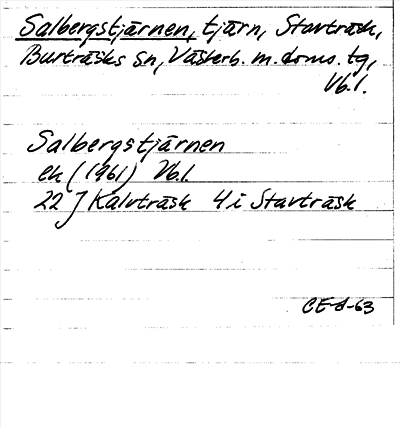 Salbergstjärnen, tjärn, Stavträsk,
Burträsks sn, Västerb. m. doms. tg,
Vb.l.
Salbergstjärnen
ek (1961) Vb.l.
22 J Kalvträsk 4 i Stavträsk
CE-A-63